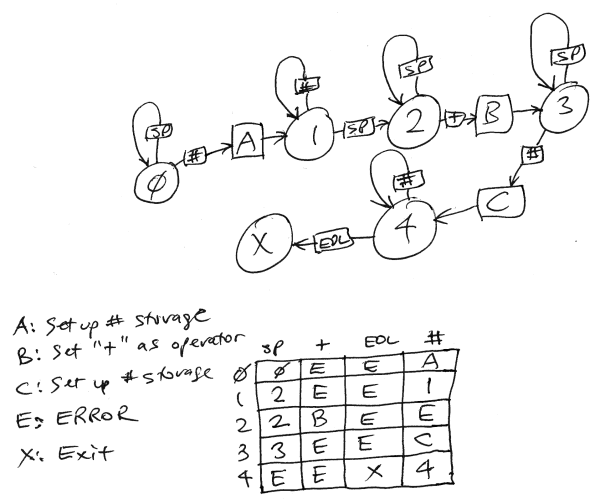 SP
#
SP
SP
SP
#
A
1
SP
2
+
B
3
0
#
#
C
X
EOL
4
A: Set up # storage
B: Set "+" as operator
C: Set up # storage
E: ERROR
X: Exit
SP + EOL #
0 0 E E A
1 2 E E 1
2 2 B E E
3 3 E E C
4 E E X 4